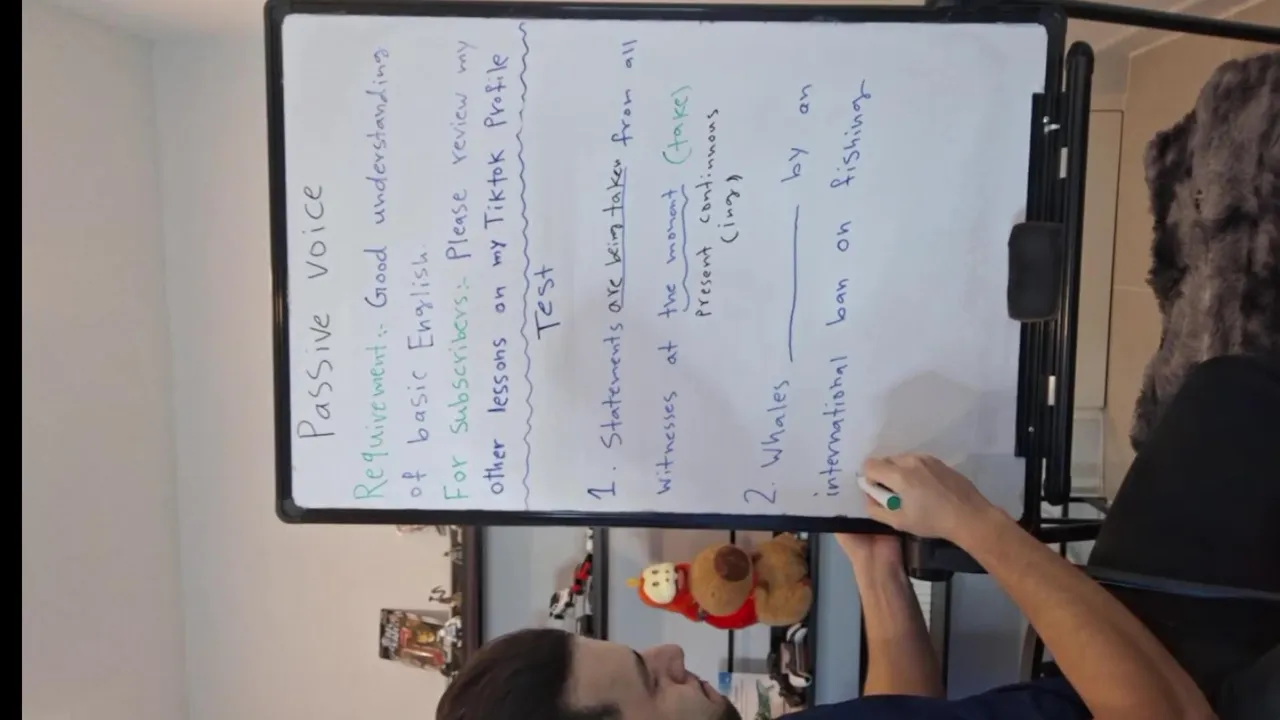 Passive voice
Requirement:- Good understanding
of basic English.
For subscribers:- Please review my
other lessons on my Tiktok Profile
Test
1. Statements are being taken from all
witnesses at the moment (take)
present continuous
(ing)
2. Whales ________ by an
international ban on fishing